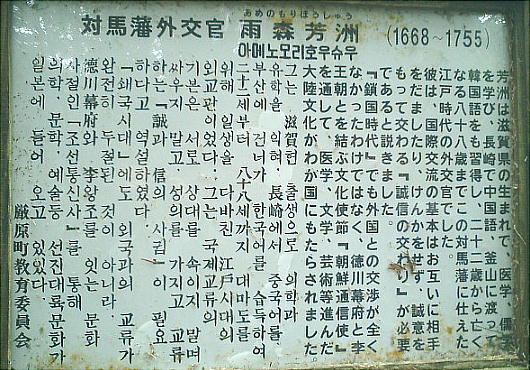 あめのもりほうしゅう
対馬藩外交官 雨森芳洲 (1668～1755)
아메노모리호우슈우
芳洲は滋賀県の生まれで、医学、儒学
を学び、長崎で中国語、釜山に渡って
韓国語をも習得し、二十二歳から亡く
なる八十八歳までこの対馬藩に仕えた
江戸時代の外交官でした。
彼は、国際交流の基本はお互いに相手
をだましたり、けんかをせず、誠意を
もって交わる『誠信の交わり』が必要
であると説きました。
『鎖国時代』でも外国との交渉が全く
なかったわけではなく、徳川幕府と李
王朝とを結ぶ文化使節『朝鮮通信使』
を通して、医学、文学、芸術等進んだ
大陸文化がわが国にもたらされました。
그는 滋賀현 출생으로 의학과
유학을 익혀、長崎에서 중국어를、
부산에 건너가 한국어를 습득하여
二十二세부터 八十八세까지 대마도를
위해 일생을 다바친 江戸시대의
외교관이었다. 그는 국제교류의
기본은 서로 상대를 속이지 말며
싸우지 말고 성의를 가지고 교류
하는『誠과 信의 사귐』이 필요
하다고 역설하였다.
『쇄국시대』에도 외국과의 교류가
완전히 두절된 것이 아니라、
徳川幕府와 李왕조를 잇는 문화
사절인『조선통신사』를 통한
의학、문학、예술등 선진대륙문화가
일본에 들어 오고 있었다.
厳原町教育委員会